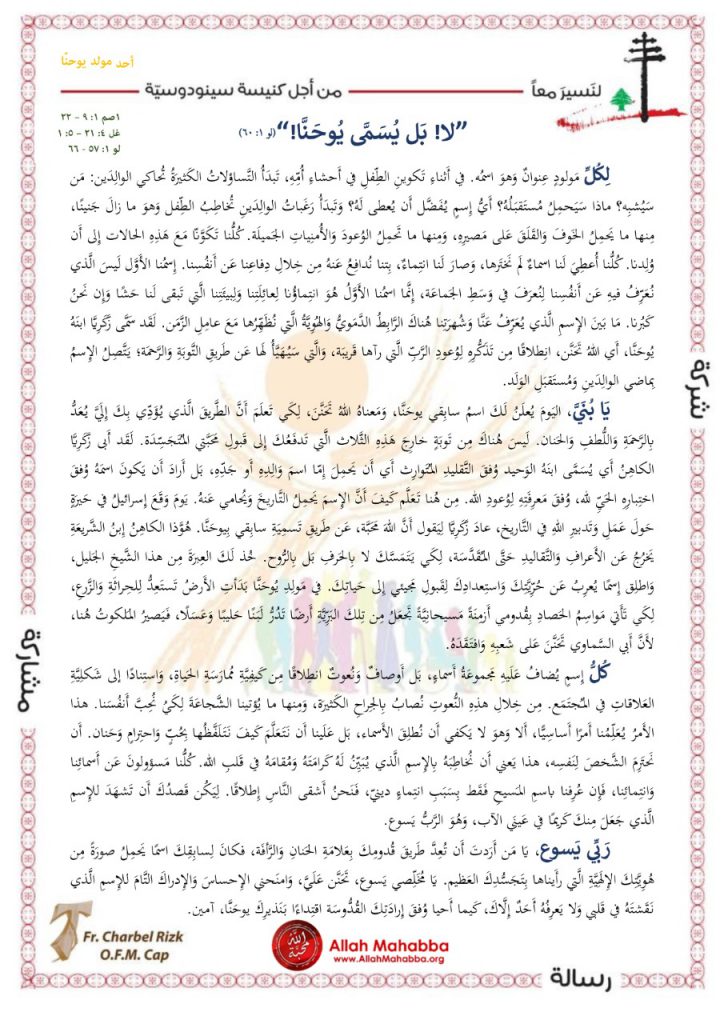 أحد مولد يوحنّا
لنَسيرَ معاً
من أجل كنيسة سينودوسيّة
١صم ١: ٩ - ٢٣
غل ٤: ٢١ - ٥: ١
لو ١: ٥٧ - ٦٦
”لا! بَل يُسَمَّى يُوحَنَّا!“ (لو ١: ٦٠)
لِكُلِّ مَولودٍ عِنوانٌ وَهوَ اسمُه. في أَثناءِ تَكوينِ الطِّفلِ في أَحشاءِ أُمِّهِ، تَبدَأُ التَّساؤلاتُ الكَثيرَةُ تُحاكي الوالِدَين: مَن
سَيُشبِه؟ ماذا سَيَحمِلُ مُستَقبَلُهُ؟ أَيُّ إِسمٍ يُفَضَّل أَن يُعطى لَهُ؟ وَتَبدَأُ رَغَباتُ الوالِدَينِ تُخاطِبُ الطِّفل وَهوَ ما زالَ جَنينًا،
مِنها ما يَحمِلُ الخَوفَ وَالقَلَقَ عَلى مَصيرِهِ، وَمِنها ما تَحمِلُ الوُعودَ وَالأُمنِياتِ الجَميلَة. كُلُّنا تَكَوَّنّا مَعَ هَذِهِ الحالات إلى أَن
وُلِدنا. كُلُّنا أُعطِيَ لَنا اسماءٌ لَم نَختَرها، وَصارَ لَنا انتِماءٌ، بِتنا نُدافِعُ عَنهُ مِن خِلالِ دِفاعِنا عَن أَنفُسِنا. إِسمُنا الأَوَّل لَيسَ الَّذي
نُعَرِّفُ فيهِ عَن أَنفُسِنا لِنُعرَفَ في وَسَطِ الجَماعَة، إِنَّما اسمُنا الأَوَّلُ هُوَ انتِماؤُنا لِعائِلَتِنا وَلِبيئَتِنا الَّتي تَبقى لَنا حَشًا وَإِن نَحنُ
كَبُرنا. مَا بَينَ الإِسمِ الَّذي يُعَرِّفُ عَنَّا وَشُهرَتِنا هُناكَ الرَّابِطُ الدَّمَوِيُّ وَالهُوِيَّةُ الَّتي نُظَهِّرُها مَعَ عامِلِ الزَّمَن. لَقَد سَمَّى زَكَرِيَّا ابنَهُ
يُوحَنَّا، أَي اللهُ تَحَنَّن، انطِلاقًا مِن تَذَكُّرِهِ لِوُعودِ الرَّبِّ الَّتي رآها قَريبَة، وَالَّتي سَيُهَيَّأُ لَها عَن طَريقِ التَّوبَةِ وَالرَّحمَة؛ يَتَّصِلُ الإِسمُ
بِماضي الوالِدَينِ وَمُستَقبَلِ الوَلَد.
يَا بُنَيَّ، اليَومَ يُعلَنُ لَكَ اسمُ سابِقي يوحَنَّا، وَمَعناهُ اللهُ تَحَنَّنَ، لِكَي تَعلَمَ أَنَّ الطَّريقَ الَّذي يُؤَدِّي بِكَ إِلَيَّ يُعَدُّ
بِالرَّحمَةِ وَاللُّطفِ وَالحَنان. لَيسَ هُناكَ مِن تَوبَةٍ خارِجَ هَذِهِ الثَّلاث الَّتي تَدفَعُكَ إِلى قَبولِ مَحَبَّتي المُتَجَسِّدَة. لَقَد أَبى زَكَرِيَّا
الكاهِنُ أَي يُسَمَّى ابنَهُ الوَحيد وُفقَ التَّقليدِ المُتَوارِث أَي أَن يَحمِلَ إِمَّا اسمَ وَالِدِهِ أَو جَدِّهِ، بَل أَرادَ أَن يَكونَ اسمَهُ وُفقَ
اختِبارِهِ الحَيِّ لله، وُفقَ مَعرِفَتِهِ لِوُعودِ الله. مِن هُنا تَعَلَّم كَيفَ أَنَّ الإِسمَ يَحمِلُ التَّاريخَ وَيُحامي عَنهُ. يَومَ وَقَعَ إِسرائيلُ في حَيرَةٍ
حَولَ عَمَلِ وَتَدبيرِ اللهِ في التَّاريخ، عادَ زَكَرِيَّا لِيَقولَ أَنَّ اللهَ مَحَبَّة، عَن طَريقِ تَسمِيَةِ سابِقي بِيوحَنَّا. هُوَّذا الكاهِنُ إِبنُ الشَّريعَةِ
يَخرُجُ عَن الأَعرافِ وَالتَّقاليدِ حَتَّى المُقَدَّسَة، لِكَي يَتَمَسَّكَ لا بِالحَرفِ بَل بِالرُّوح. خُذ لَكَ العِبرَةَ مِن هذا الشَّيخِ الجَليل،
وَاطلِق إِسمًا يُعرِبُ عَن حُرِّيَّتِكَ وَاستِعدادِكَ لِقَبولِ مَجيئي إِلى حَياتِكَ. في مَولِدِ يُوحَنَّا بَدَأَتِ الأَرضُ تَستَعِدُّ لِلحِراثَةِ وَالزَّرعِ،
لِكَي تَأتي مَواسِمُ الحَصادِ بِقُدومي أَزمِنَةً مَسيحانِيَّةً تَجعَلُ مِن تِلكَ البَرِّيَّةِ أَرضًا تَدُرُّ لَبَنًا حَليبًا وَعَسَلًا، فَيَصيرُ المَلَكوتُ هُنا،
لأَنَّ أَبي السَّماوي تَحَنَّنَ عَلى شَعبِهِ وَافتَقَدَهُ.
كُلُّ إِسمٍ يُضافُ عَلَيهِ مَجموعَةُ أَسماءٍ، بَل أَوصافٌ وَنُعوتٌ انطِلاقًا مِن كَيفِيَّةِ مُمارَسَةِ الحَياةِ، وَاستِنادًا إلى شَكلِيَّةِ
العَلاقاتِ في المُجتَمَع. مِن خِلالِ هذِهِ النُّعوتِ نُصابُ بِالجِراحِ الكَثيرَة، وَمِنها ما يُؤتينا الشَّجاعَةَ لِكَيُ نُحِبَّ أَنفُسَنا. هذا
الأَمرُ يُعَلِّمُنا أَمرًا أَساسِيًّا، أَلا وَهوَ لا يَكفي أَن نُطلِقَ الأَسماء، بَل عَلَينا أَن نَتَعَلَّمَ كَيفَ نَتَلَفَّظُها بِحُبٍّ وَاحتِرامٍ وَحَنان. أَن
نَحتَرِمَ الشَّخصَ لِنَفسِه، هذا يَعني أَن نُخاطِبَهُ بِالإِسمِ الَّذي يُبَيِّنُ لَهُ كَرامَتَهُ وَمُقامَهُ في قَلبِ الله. كُلُّنا مَسؤولونَ عَن أَسمائِنا
وَانتِمائِنا، فَإِن عُرِفنا باسمِ المَسيحِ فَقَط بِسَبَبِ انتِماءٍ دينِيّ، فَنَحنُ أَشقى النَّاسِ إِطلاقًا. لِيَكُن قَصدُكَ أَن تَشهَدَ لِلإِسمِ
الَّذي جَعَلَ مِنكَ كَريمًا في عَينَي الآب، وَهُوَ الرَّبُّ يَسوع.
رَبِّي يَسوع، يَا مَن أَرَدتَ أَن تُعِدَّ طَريقَ قُدومِكَ بِعَلامَةِ الحَنانِ وَالرَّأفَة، فَكانَ لِسابِقِكَ اسمًا يَحمِلُ صورَةً مِن
هُوِيَّتِكَ الإِلهِيَّةِ الَّتي رَأَيناها بِتَجَسُّدِكَ العَظيم. يَا مُخَلِّصي يَسوع، تَحَنَّن عَلَيَّ، وَامنَحني الإِحساسَ وَالإِدراكَ التَّامَ لِلإِسمِ الَّذي
نَقَشتَهُ في قَلبي وَلا يَعرِفُهُ أَحَدٌ إِلَّاكَ، كَيما أَحيا وُفقَ إِرادَتِكَ القُدُّوسَة اقتِداءًا بِنَذيرِكَ يوحَنَّا، آمين.
شركة
مشاركة
رسالة
Fr. Charbel Rizk
O.F.M. Cap
الله محبّة
Allah Mahabba
www.AllahMahabba.org